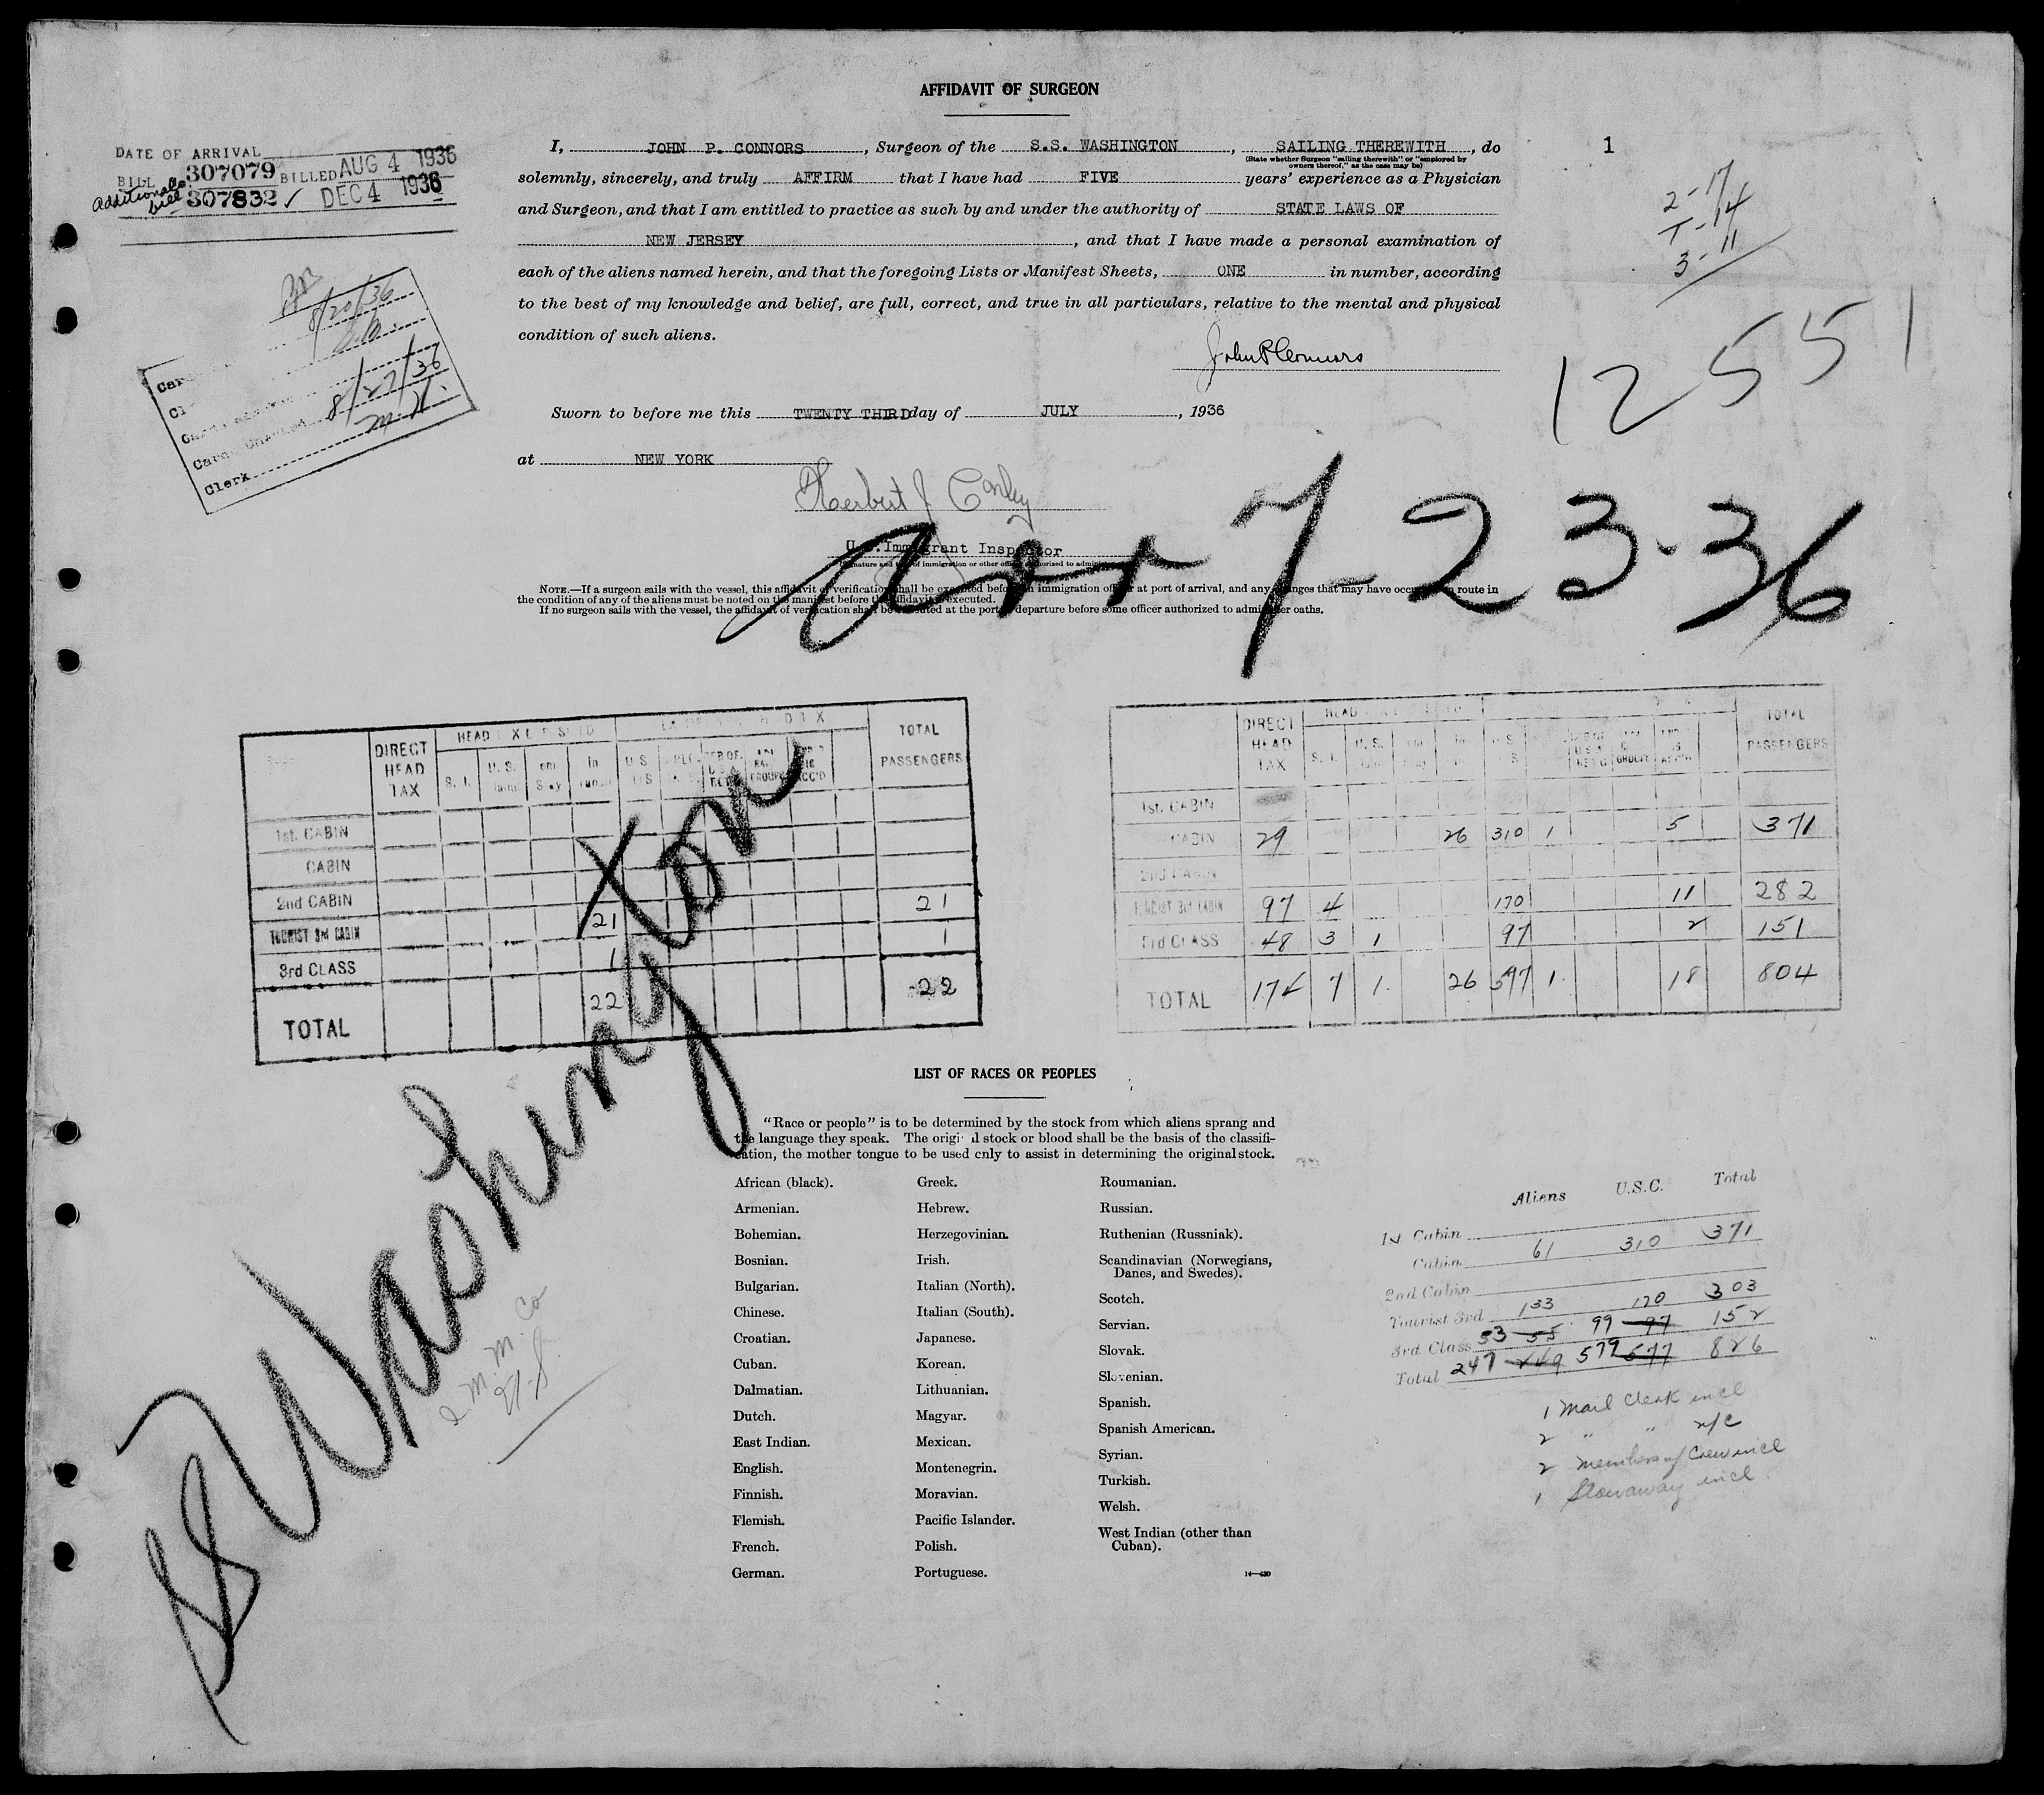 AFFIDAVIT OF SURGEON
1
DATE OF ARRIVAL
BILL 307079 BILLED AUG 4 1936
additional bill 307832 ✓ DEC 4 1936
I, JOHN P. CONNORS, Surgeon of the S.S. WASHINGTON, SAILING THEREWITH, do
(State whether Surgeon "sailing therewith" or "employed by
owners thereof," as the case may be)
solemnly, sincerely, and truly AFFIRM that I have had FIVE years' experience as a Physician
and Surgeon, and that I am entitled to practice as such by and under the authority of STATE LAWS OF
NEW JERSEY, and that I have made a personal examination of
each of the aliens named herein, and that the foregoing Lists or Manifest Sheets, ONE in number, according
to the best of my knowledge and belief, are full, correct, and true in all particulars, relative to the mental and physical
condition of such aliens.
John P Connors
Sworn to before me this TWENTY THIRD day of JULY, 1936
at NEW YORK
Herbert J Conley
U.S. Immigrant Inspector
2-17
T-14
3-11
12551
8/20/36
8/27/36
Clerk
arr 7-23-36
NOTE.—If a surgeon sails with the vessel, this affidavit of verification shall be executed before an immigration officer at port of arrival, and any changes that may have occurred en route in
the condition of any of the aliens must be noted on the manifest before the affidavit is executed.
If no surgeon sails with the vessel, the affidavit of verification shall be executed at the port of departure before some officer authorized to administer oaths.
DIRECT HEAD TAX S. I. U. S. TOTAL PASSENGERS
1st. CABIN
CABIN
2nd CABIN
TOURIST 3rd CABIN 21 21
3rd CLASS 1 1
TOTAL 22 22
DIRECT HEAD TAX S. I. U. S. TOTAL PASSENGERS
1st. CABIN
CABIN 29 26 310 1 5 371
2nd CABIN
TOURIST 3rd CABIN 97 4 170 11 282
3rd CLASS 48 3 1 97 2 151
TOTAL 174 7 1 26 577 1 18 804
SS Washington
I. M. M. Co
LIST OF RACES OR PEOPLES
"Race or people" is to be determined by the stock from which aliens sprang and
the language they speak. The original stock or blood shall be the basis of the classifi-
cation, the mother tongue to be used only to assist in determining the original stock.
African (black).
Armenian.
Bohemian.
Bosnian.
Bulgarian.
Chinese.
Croatian.
Cuban.
Dalmatian.
Dutch.
East Indian.
English.
Finnish.
Flemish.
French.
German.
Greek.
Hebrew.
Herzegovinian.
Irish.
Italian (North).
Italian (South).
Japanese.
Korean.
Lithuanian.
Magyar.
Mexican.
Montenegrin.
Moravian.
Pacific Islander.
Polish.
Portuguese.
Roumanian.
Russian.
Ruthenian (Russniak).
Scandinavian (Norwegians,
Danes, and Swedes).
Scotch.
Servian.
Slovak.
Slovenian.
Spanish.
Spanish American.
Syrian.
Turkish.
Welsh.
West Indian (other than
Cuban).
Aliens U.S.C. Total
1st Cabin
Cabin 61 310 371
2nd Cabin
Tourist 3rd 133 170 303
3rd Class 53 55 99 97 152
Total 247 249 579 577 826
1 Mail Clerk incl
2 " " n/c
2 members of Crew incl
1 Stowaway incl